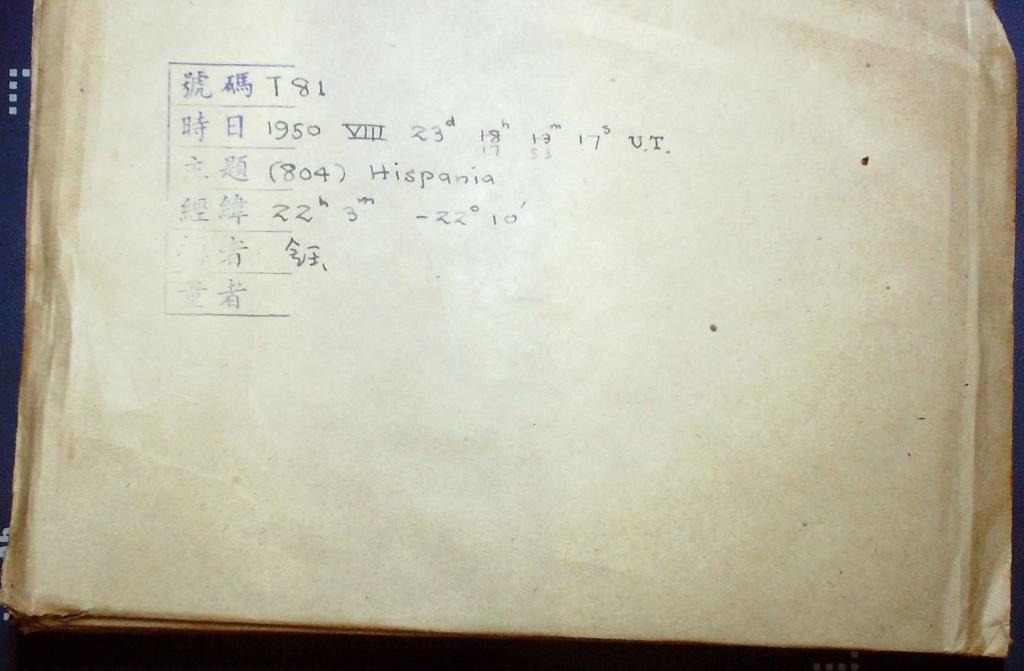 號碼 T 81
時日 1950 VIII 23ᵈ 18ʰ 13ᵐ 17ˢ U.T.
17 53
主題 (804) Hispania
經緯 22ʰ 3ᵐ -22° 10′
者
量者